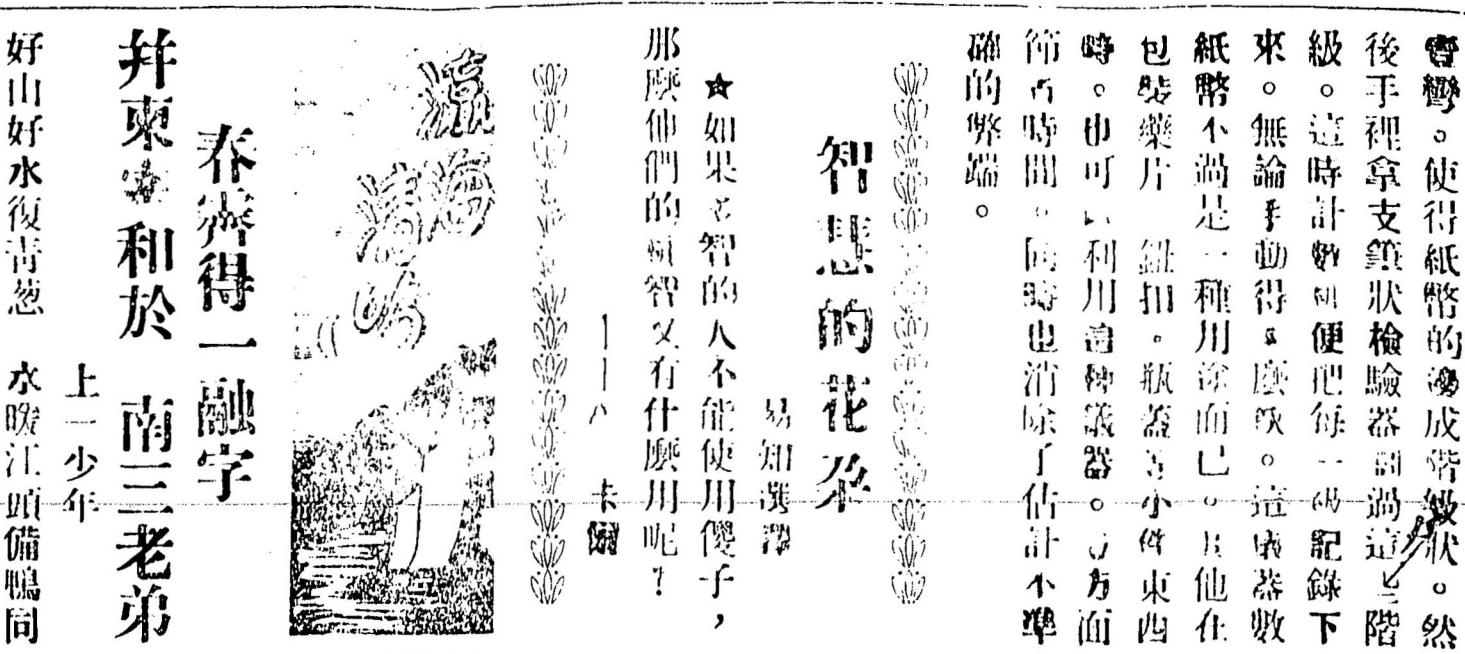 彎。使得紙幣的邊成階級狀。然
後手裡拿支鎖狀檢驗器劃過這些階
級。這時計數機便把每一級記錄下
來。無論手動得多麼快。這儀器數
紙幣不過是一種用途而已。其他在
包裝藥片 鈕扣。瓶蓋等小件東西
時。也可以利用這種儀器。一方面
節省時間。同時也消除了估計不準
確的弊端。
智慧的花朶
易知選譯
★如果多智的人不能使用傻子,
那麼他們的智又有什麼用呢?
卡
瀛海清鳴
春霽得一融字
幷柬 和於 南三老弟
上一少年
好山好水復青葱 水暖江頭備鴨同